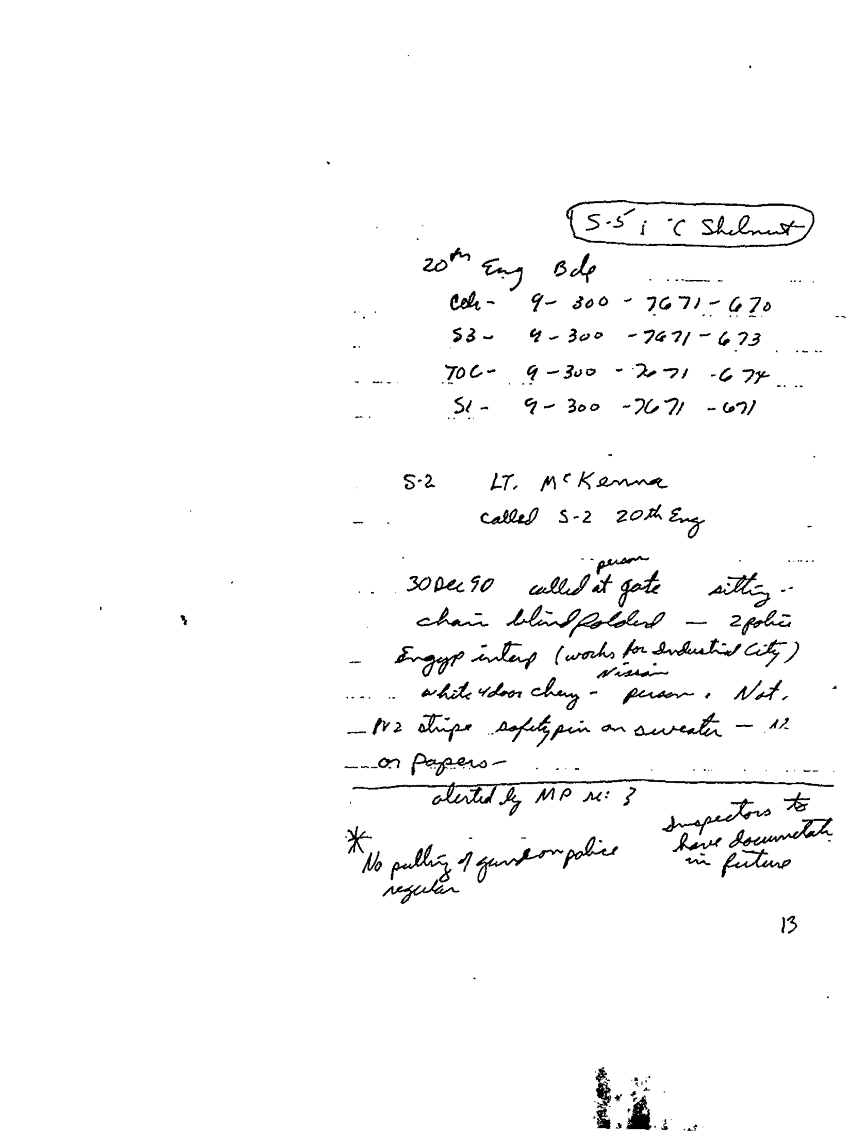 S-5 i °C Shelnut
20th Eng Bde
Cdr - 9 - 300 - 7671 - 670
S3 - 9 - 300 - 7671 - 673
TOC - 9 - 300 - 7671 - 674
S1 - 9 - 300 - 7671 - 671
S-2 LT. McKenna
called S-2 20th Eng
person
30 Dec 90 called at gate sitting -
chair blindfolded — 2 police
Engyp interp (works for Industrial City)
white 4 door chevy - person. Nat.
PV2 stripe safety pin on sweater —
on Papers —
alerted by MP re: 3
* No pulling of guns on police
regular
Inspectors to
have documetat
in future
13